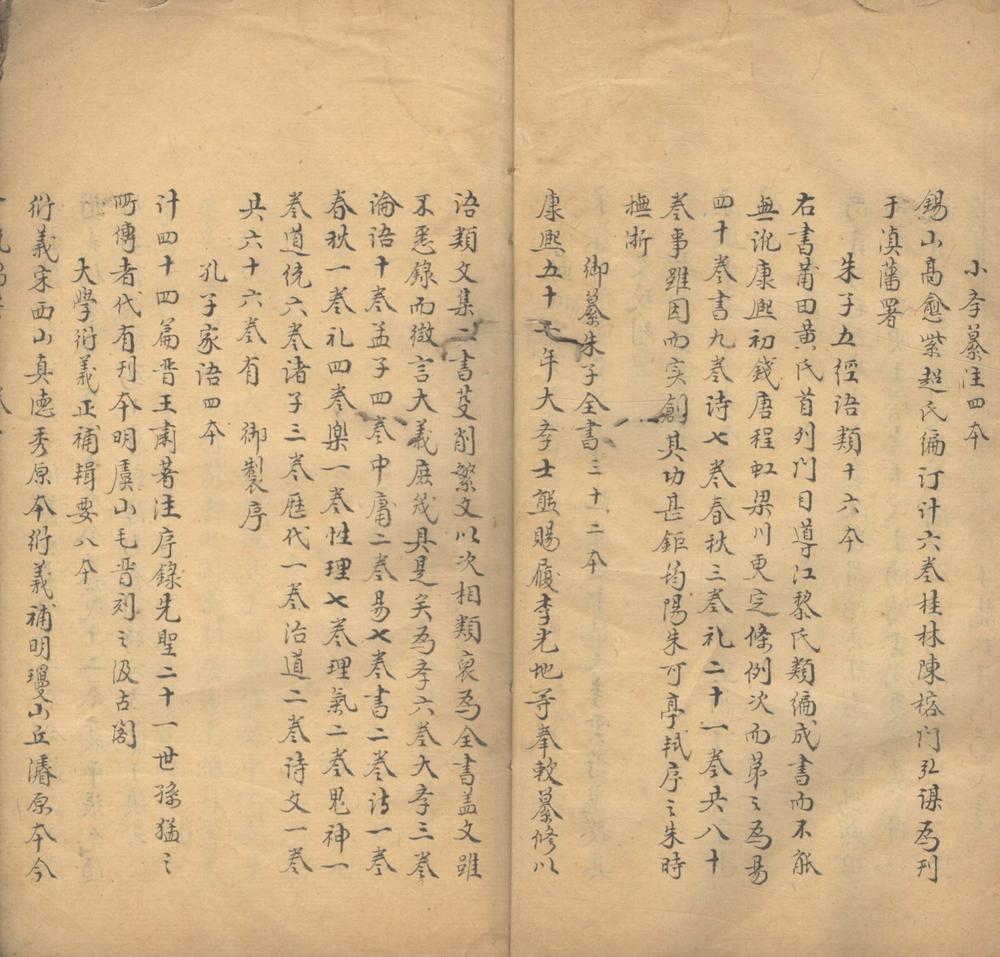 小孝纂注四本
錫山高愈紫超氏编订计六巻桂林陳榕门弘谋為刊
于滇藩署
朱子五經语類十六本
右書莆田黄氏首列门目導江黎氏類编成書而不能
無訛康熙初錢唐程虹梁川更定條例次而第之為易
四十巻書九巻诗七巻春秋三巻礼二十一巻共八十
巻事雖因而实創其功甚鉅均陽朱可亭軾序之朱時
撫浙
御纂朱子全書三十二本
康熙五十年大孝士熊賜履李光地等奉敕纂修以
语類文集二書芟削繁文以次相類裒為全書盖文雖
不悉錄而微言大義庶幾具是矣為孝六巻大孝三巻
論语十巻孟子四巻中庸二巻易七巻書二巻诗一巻
春秋一巻礼四巻樂一巻性理七巻理氣二巻鬼神一
巻道统六巻诸子三巻歴代一巻治道二巻诗文一巻
共六十六巻有 御製序
孔子家语四本
计四十四篇晋王肅著注序錄先聖二十一世孫猛之
所傳者代有刊本明虞山毛晋刻之汲古阁
大學衍義正補輯要八本
衍義宋西山真德秀原本衍義補明瓊山丘濬原本今